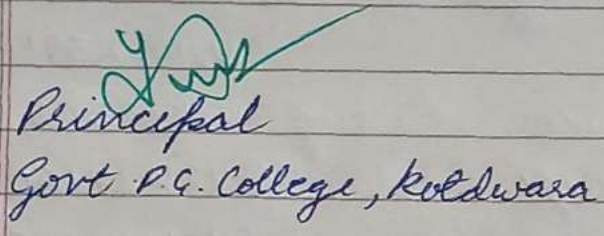 Principal
Govt P.G. College, Kotdwara